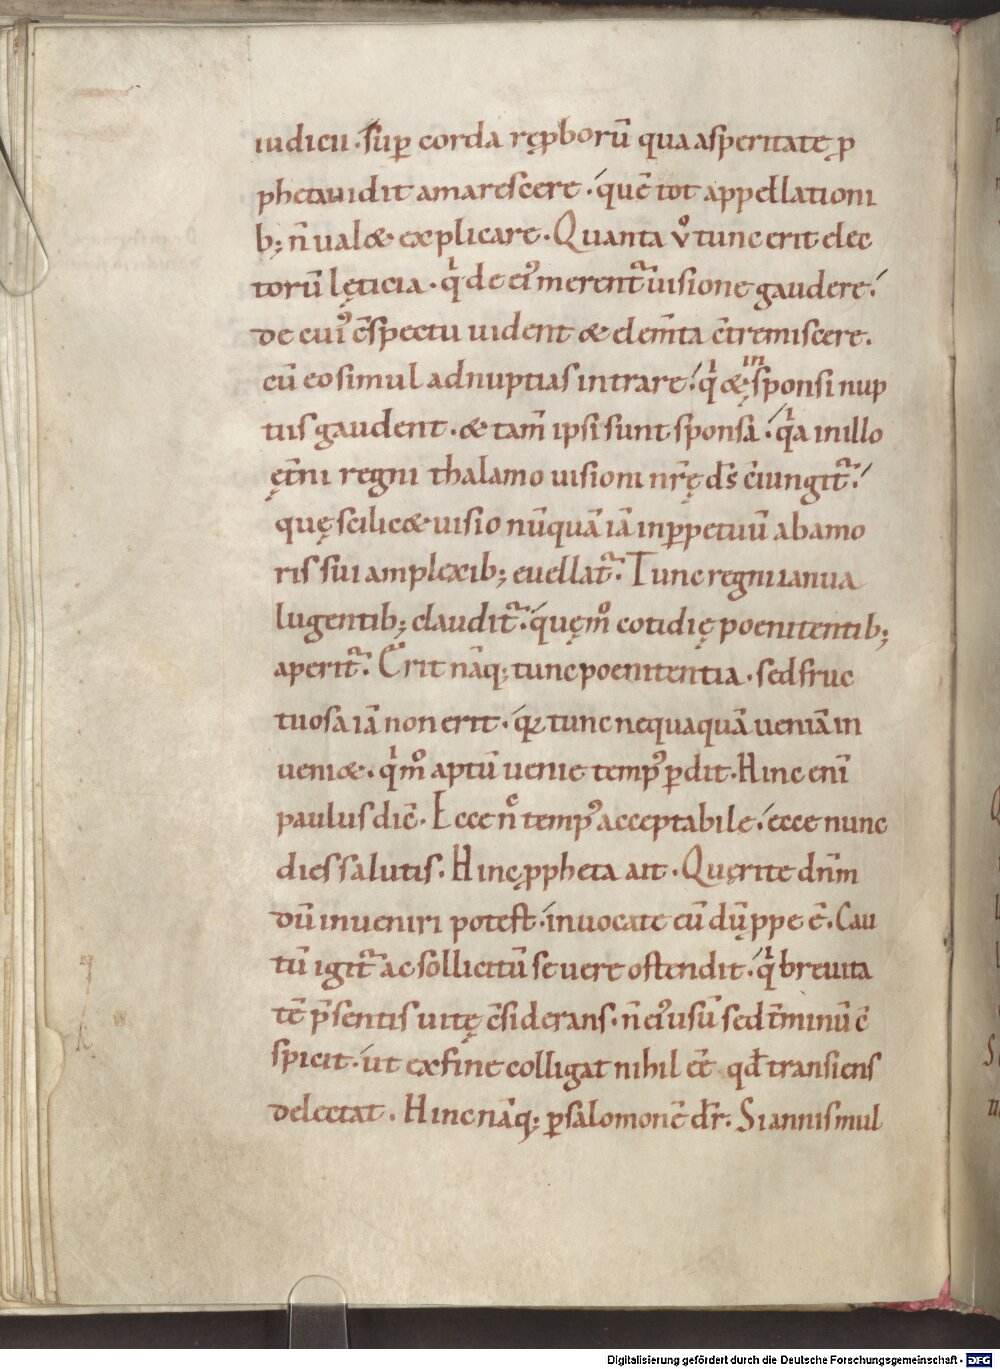 iudicii · sup̄ corda rep̱borū qua asperitate ꝓ
pheta uidit amarescere · quē tot appellationi
b; n̄ ualet explicare · Quanta v̊ tunc erit elec
torū lęticia · qͥ de eiꝰ merent᷑ uisione gaudere ·
de cuiꝰ c̄spectu uident & elem̄ta c̄tremiscere ·
cū eo simul ad nuptias intrare · qͥ & in sponsi nup
tiis gaudent · & tam̄ ipsi sunt sponsa · qͥa in illo
ęt̄ni regni thalamo uisioni nr̄ę ds̄ c̄iungit᷑ ·
quę scilic& uisio nūquā iā in ꝑpetuū ab amo
ris sui amplexib; euellat᷑ · Tunc regni ianua
lugentib; claudit᷑ · quę m̊ cotidię poenitentib;
aperit᷑ · Erit nāq; tunc poenitentia · sed fruc
tuosa iā non erit · qꝛ tunc nequaquā ueniā in
ueni& · qͥ m̊ aptū uenie tempꝰ ꝑdit · Hinc eni̅
paulus dic̄ · Ecce nͨ tempꝰ acceptabile · ecce nunc
dies salutis · Hinc ꝓpheta ait · Quęrite dn̄m
dū inueniri potest · inuocate eū dū ꝓpe ē · Cau
tū igit᷑ ac sollicitū se uere ostendit · qͥ breuita
tē p̄sentis uitę c̄siderans · n̄ eiꝰ usū sed t̄minū c̄
spicit · ut ex fine colligat nihil ec̄c̄ qd̄ transiens
delectat · Hinc nāq; ꝑ salomonē dr̄ · Si annis mul
Digitalisierung gefördert durch die Deutsche Forschungsgemeinschaft - DFG